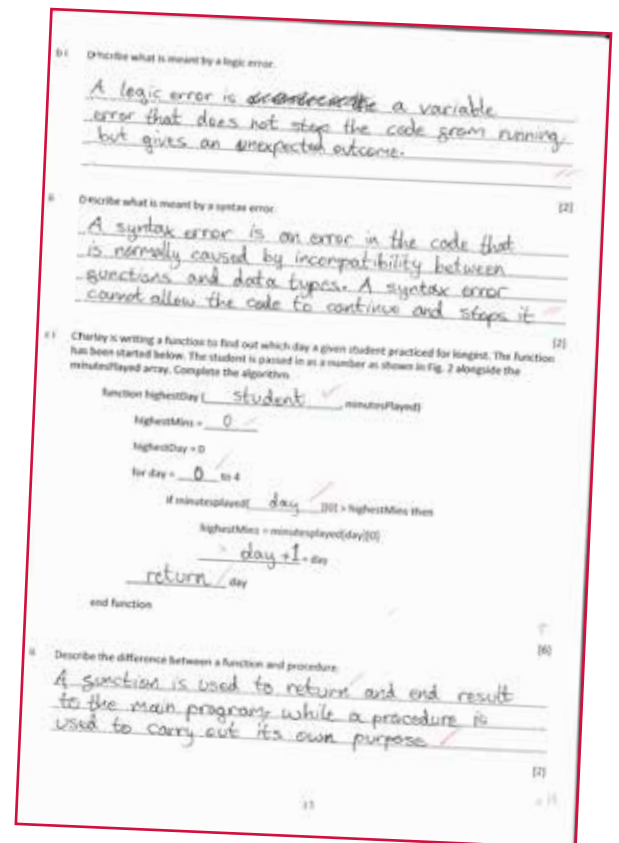 b i Describe what is meant by a logic error.
A logic error is a variable
error that does not stop the code grom running
but gives an unexpected outcome.
[2]
ii Describe what is meant by a syntax error.
A syntax error is an error in the code that
is normally caused by incompatibility between
gunctions and data types. A syntax error
cannot allow the code to continue and stops it
[2]
c i Charley is writing a function to find out which day a given student practiced for longest. The function
has been started below. The student is passed in as a number as shown in Fig. 2 alongside the
minutesPlayed array. Complete the algorithm
function highestDay ( student , minutesPlayed)
highestMins = 0
highestDay = 0
for day = 0 to 4
if minutesplayed[ day ][0] > highestMins then
highestMins = minutesplayed[day][0]
day +1 = day
return day
end function
[6]
ii Describe the difference between a function and procedure.
A gunction is used to return and end result
to the main program, while a procedure is
used to carry out its own purpose
[2]